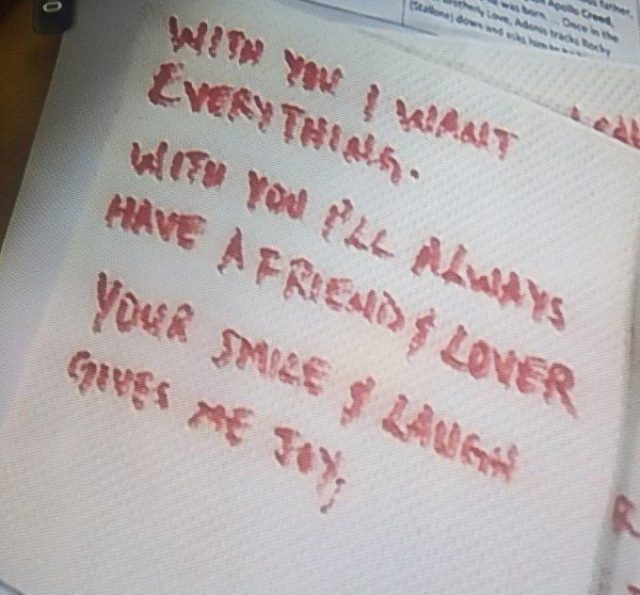 Apollo Creed,
he was born. ... Once in the
Brotherly Love, Adonis tracks Rocky
(Stallone) down and asks him to
WITH YOU I WANT
EVERYTHING.
WITH YOU I'LL ALWAYS
HAVE A FRIEND & LOVER
YOUR SMILE & LAUGH
GIVES ME JOY;
R